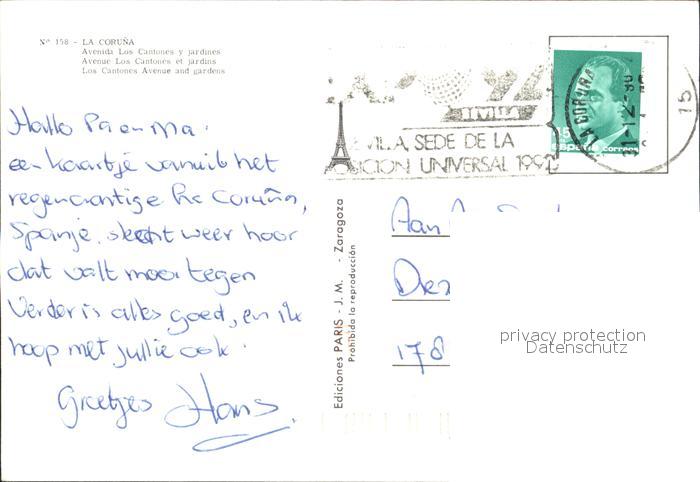 Nº 158 - LA CORUÑA
Avenida Los Cantones y jardines
Avenue Los Cantones et jardins
Los Cantones Avenue and gardens
Hallo Pa en Ma.
een kaartje vanuit het
regenachtige La Coruña,
Spanje. slecht weer hoor
dat valt mooi tegen
Verder is alles goed, en ik
hoop met jullie ook.
Groetjes Hans.
Ediciones PARIS - J. M. - Zaragoza
Prohibida la reproducción
SEVILLA
SEVILLA, SEDE DE LA
EXPOSICION UNIVERSAL 1992
LA CORUÑA
15
España correos
Aan
178
privacy protection
Datenschutz